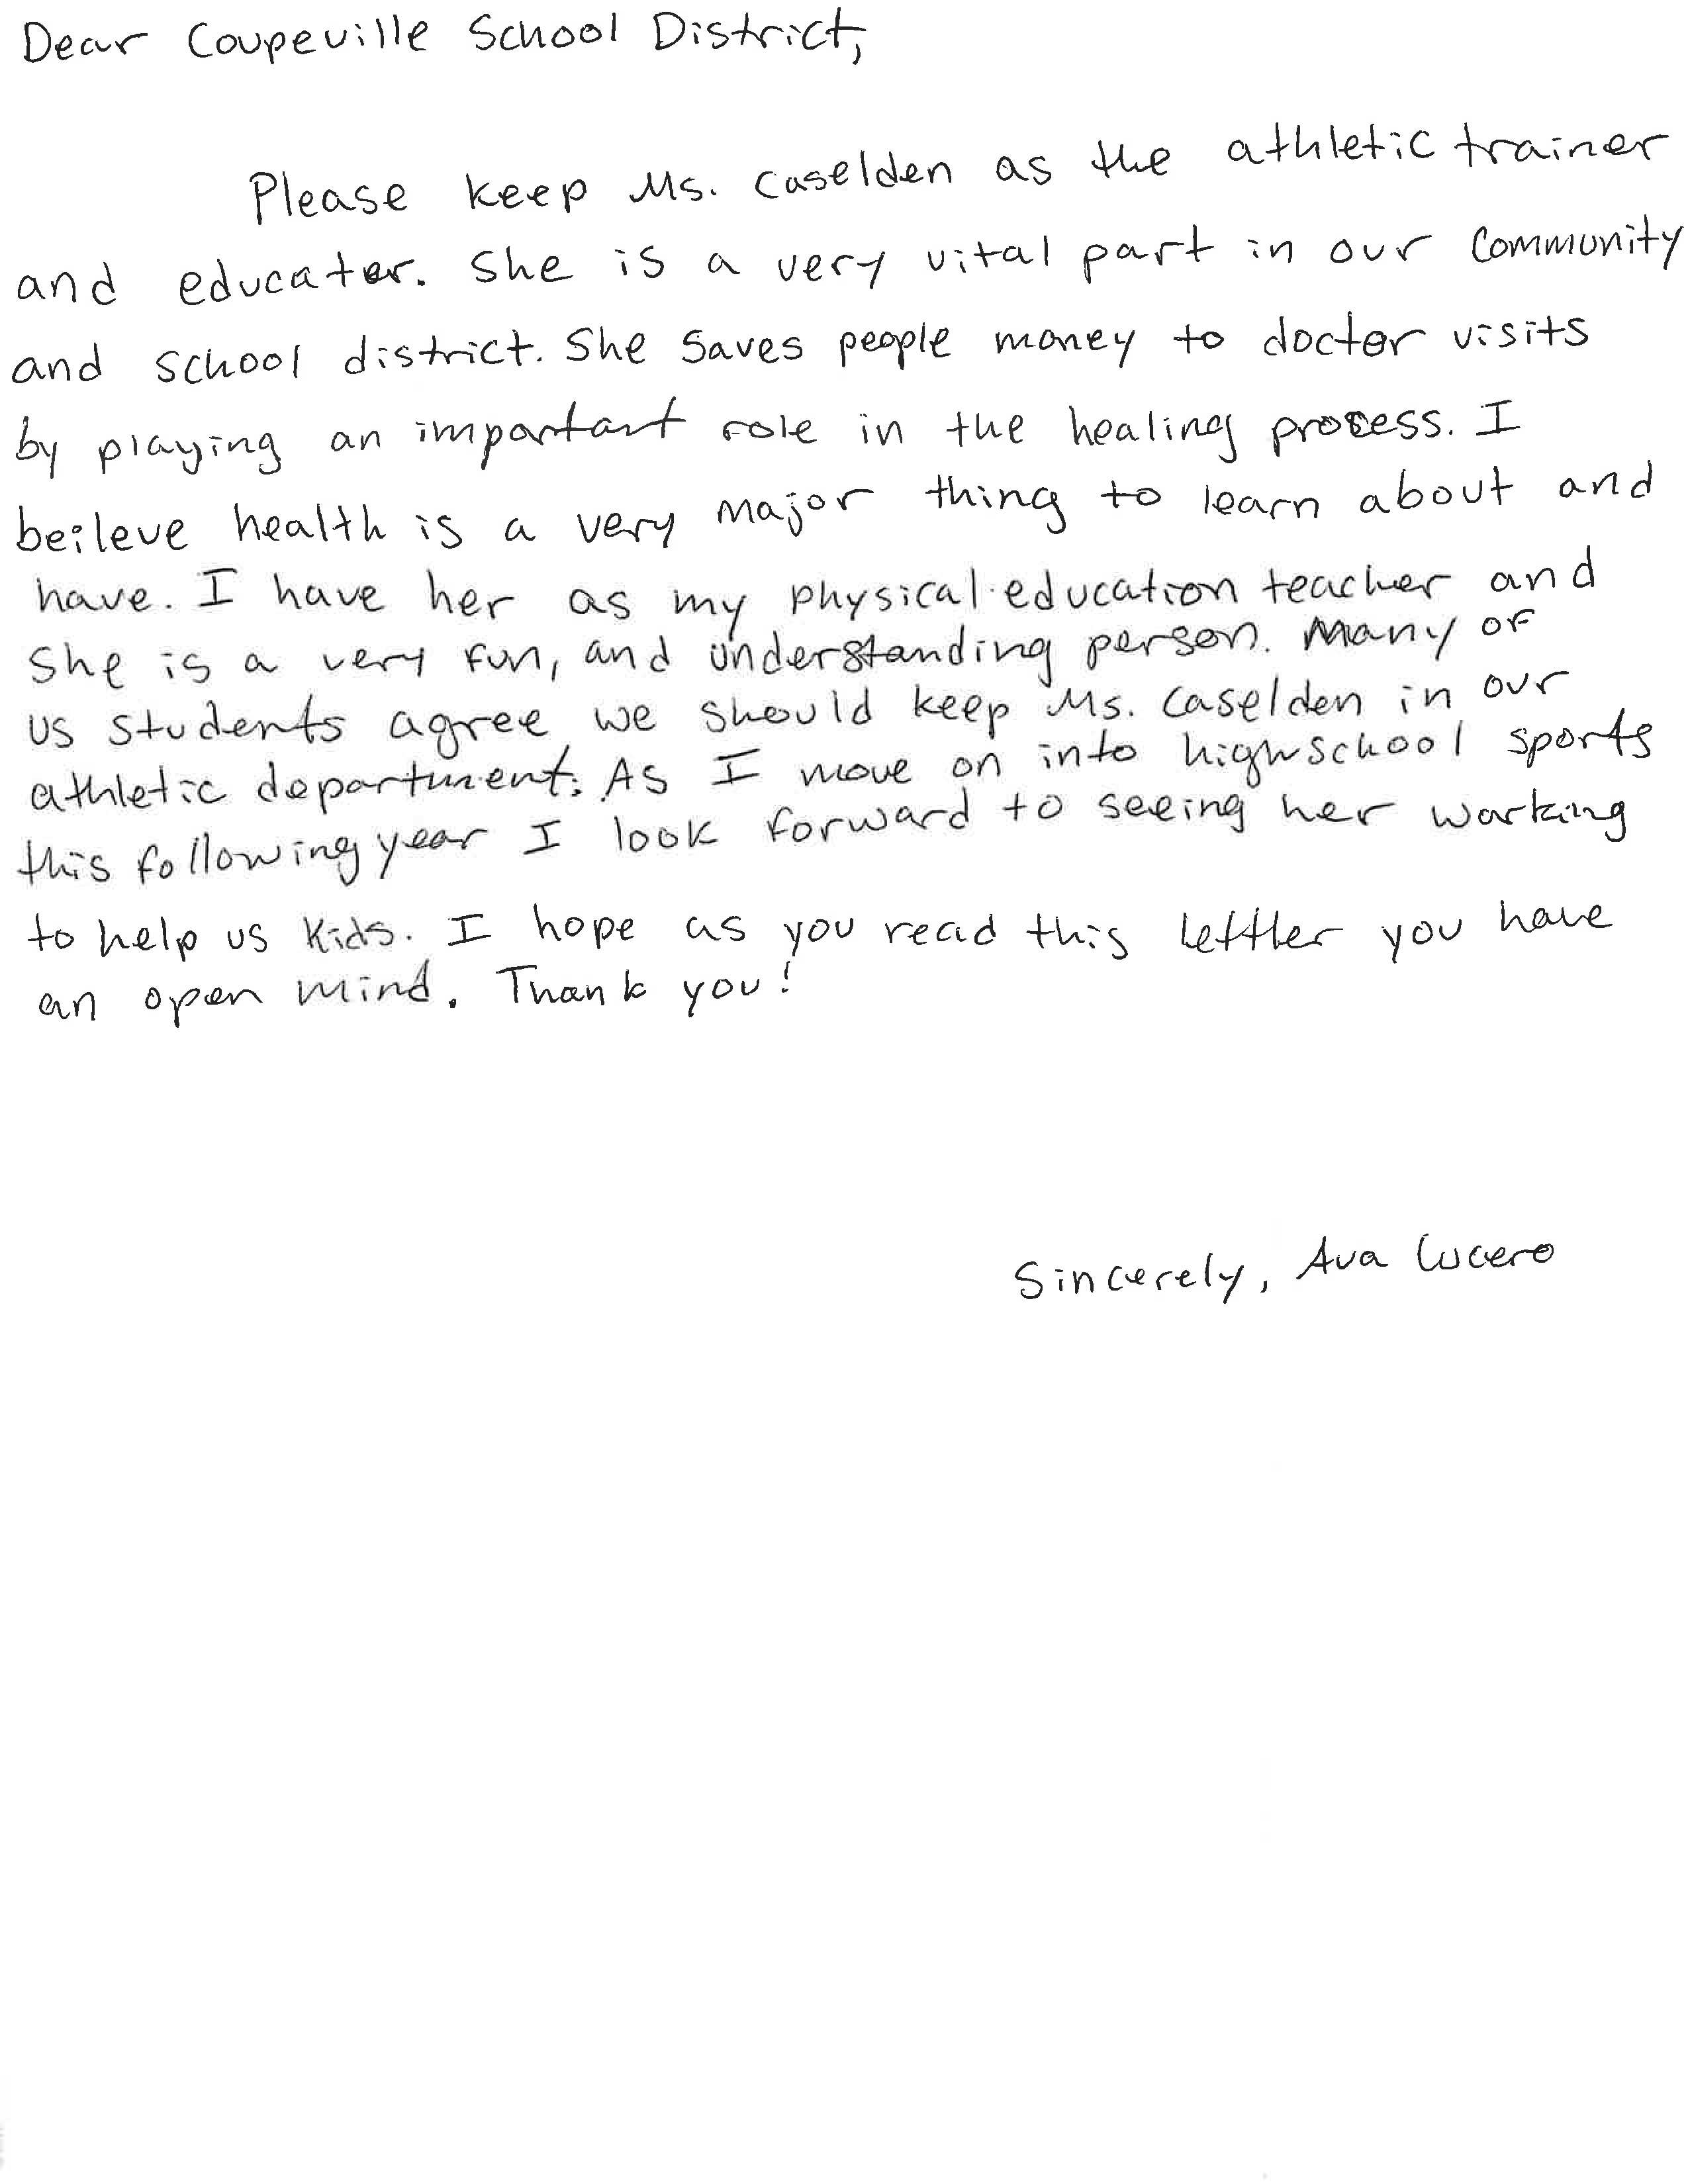 Dear Coupeville School District,
Please keep Ms. Caselden as the athletic trainer
and educater. She is a very vital part in our community
and school district. She saves people money to doctor visits
by playing an important role in the healing process. I
beileve health is a very major thing to learn about and
have. I have her as my physical education teacher and
she is a very fun, and understanding person. Many of
us students agree we should keep Ms. Caselden in our
athletic department. As I move on into highschool sports
this following year I look forward to seeing her working
to help us kids. I hope as you read this lettler you have
an open mind. Thank you!
Sincerely, Ava Lucero